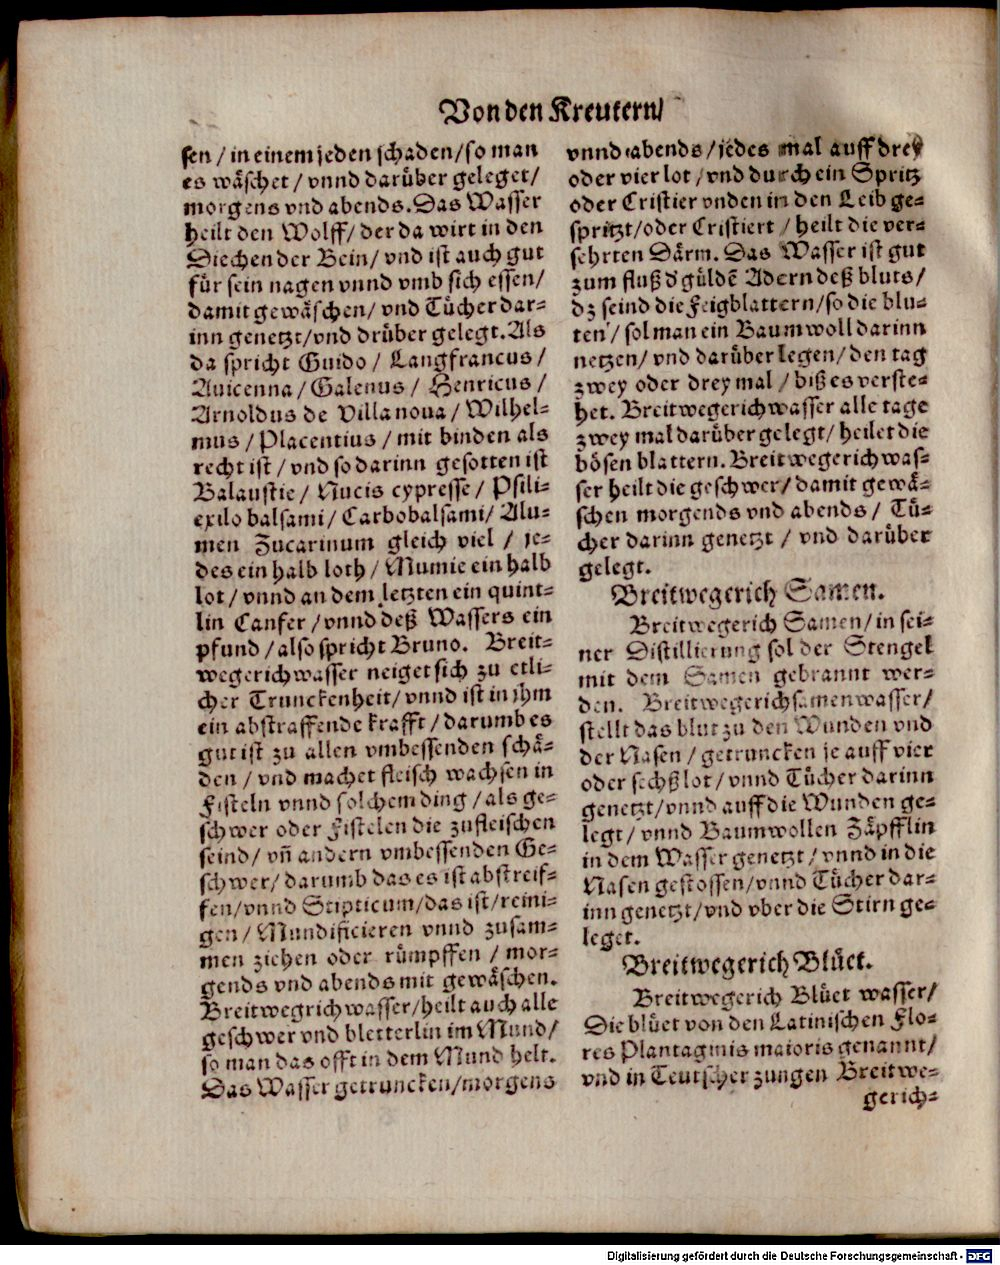 Von den Kreutern/
sen / in einem jeden schaden/so man
es wäschet / vnnd darüber geleget/
morgens vnd abends. Das Wasser
heilt den Wolff/ der da wirt in den
Diechen der Bein/ vnd ist auch gut
für sein nagen vnnd vmb sich essen/
damit gewäschen/ vnd Tücher dar-
inn genetzt/vnd drüber gelegt. Als
da spricht Guido / Langfrancus /
Auicenna / Galenus / Henricus /
Arnoldus de Villa noua / Wilhel-
mus / Placentius / mit binden als
recht ist / vnd so darinn gesotten ist
Balaustie / Nucis cypresse / Psili-
exilo balsami/ Carbobalsami/ Alu-
men Zucarinum gleich viel / je-
des ein halb loth / Mumie ein halb
lot / vnnd an dem letzten ein quint-
lin Canfer / vnnd deß Wassers ein
pfund / also spricht Bruno. Breit-
wegerichwasser neiget sich zu etli-
cher Trunckenheit/ vnnd ist in jhm
ein abstraffende krafft / darumb es
gut ist zu allen vmbessenden schä-
den / vnd machet fleisch wachsen in
Fisteln vnnd solchem ding / als ge-
schwer oder Fistelen die zufleischen
seind / vn̄ andern vmbessenden Ge-
schwer/ darumb das es ist abstreif-
fen/vnnd Stipticum/das ist/reini-
gen / Mundificieren vnnd zusam-
men ziehen oder rümpffen / mor-
gends vnd abends mit gewäschen.
Breitwegrichwasser/heilt auch alle
geschwer vnd bletterlin im Mund/
so man das offt in dem Mund helt.
Das Wasser getruncken/morgens
vnnd abends / jedes mal auff drey
oder vier lot / vnd durch ein Spritz
oder Cristier vnden in den Leib ge-
spritzt/oder Cristiert / heilt die ver-
sehrten Därm. Das Wasser ist gut
zum fluß d' güldē Adern deß bluts/
dz seind die Feigblattern/so die blu-
ten / sol man ein Baumwoll darinn
netzen/ vnd darüber legen/ den tag
zwey oder drey mal / biß es verste-
het. Breitwegerichwasser alle tage
zwey mal darüber gelegt/ heilet die
bösen blattern. Breitwegerichwas-
ser heilt die geschwer/ damit gewä-
schen morgends vnd abends / Tü-
cher darinn genetzt / vnd darüber
gelegt.
Breitwegerich Samen.
Breitwegerich Samen/ in sei-
ner Distillierung sol der Stengel
mit dem Samen gebrannt wer-
den. Breitwegerichsamenwasser/
stellt das blut zu den Wunden vnd
der Nasen / getruncken je auff vier
oder sechß lot / vnnd Tücher darinn
genetzt/vnnd auff die Wunden ge-
legt / vnnd Baumwollen Zäpfflin
in dem Wasser genetzt / vnnd in die
Nasen gestossen/vnnd Tücher dar-
inn genetzt/vnd vber die Stirn ge-
leget.
Breitwegerich Blüet.
Breitwegerich Blüet wasser/
Die blüet von den Latinischen Flo-
res Plantaginis maioris genannt/
vnd in Teutscher zungen Breitwe-
gerich-
Digitalisierung gefördert durch die Deutsche Forschungsgemeinschaft - DFG